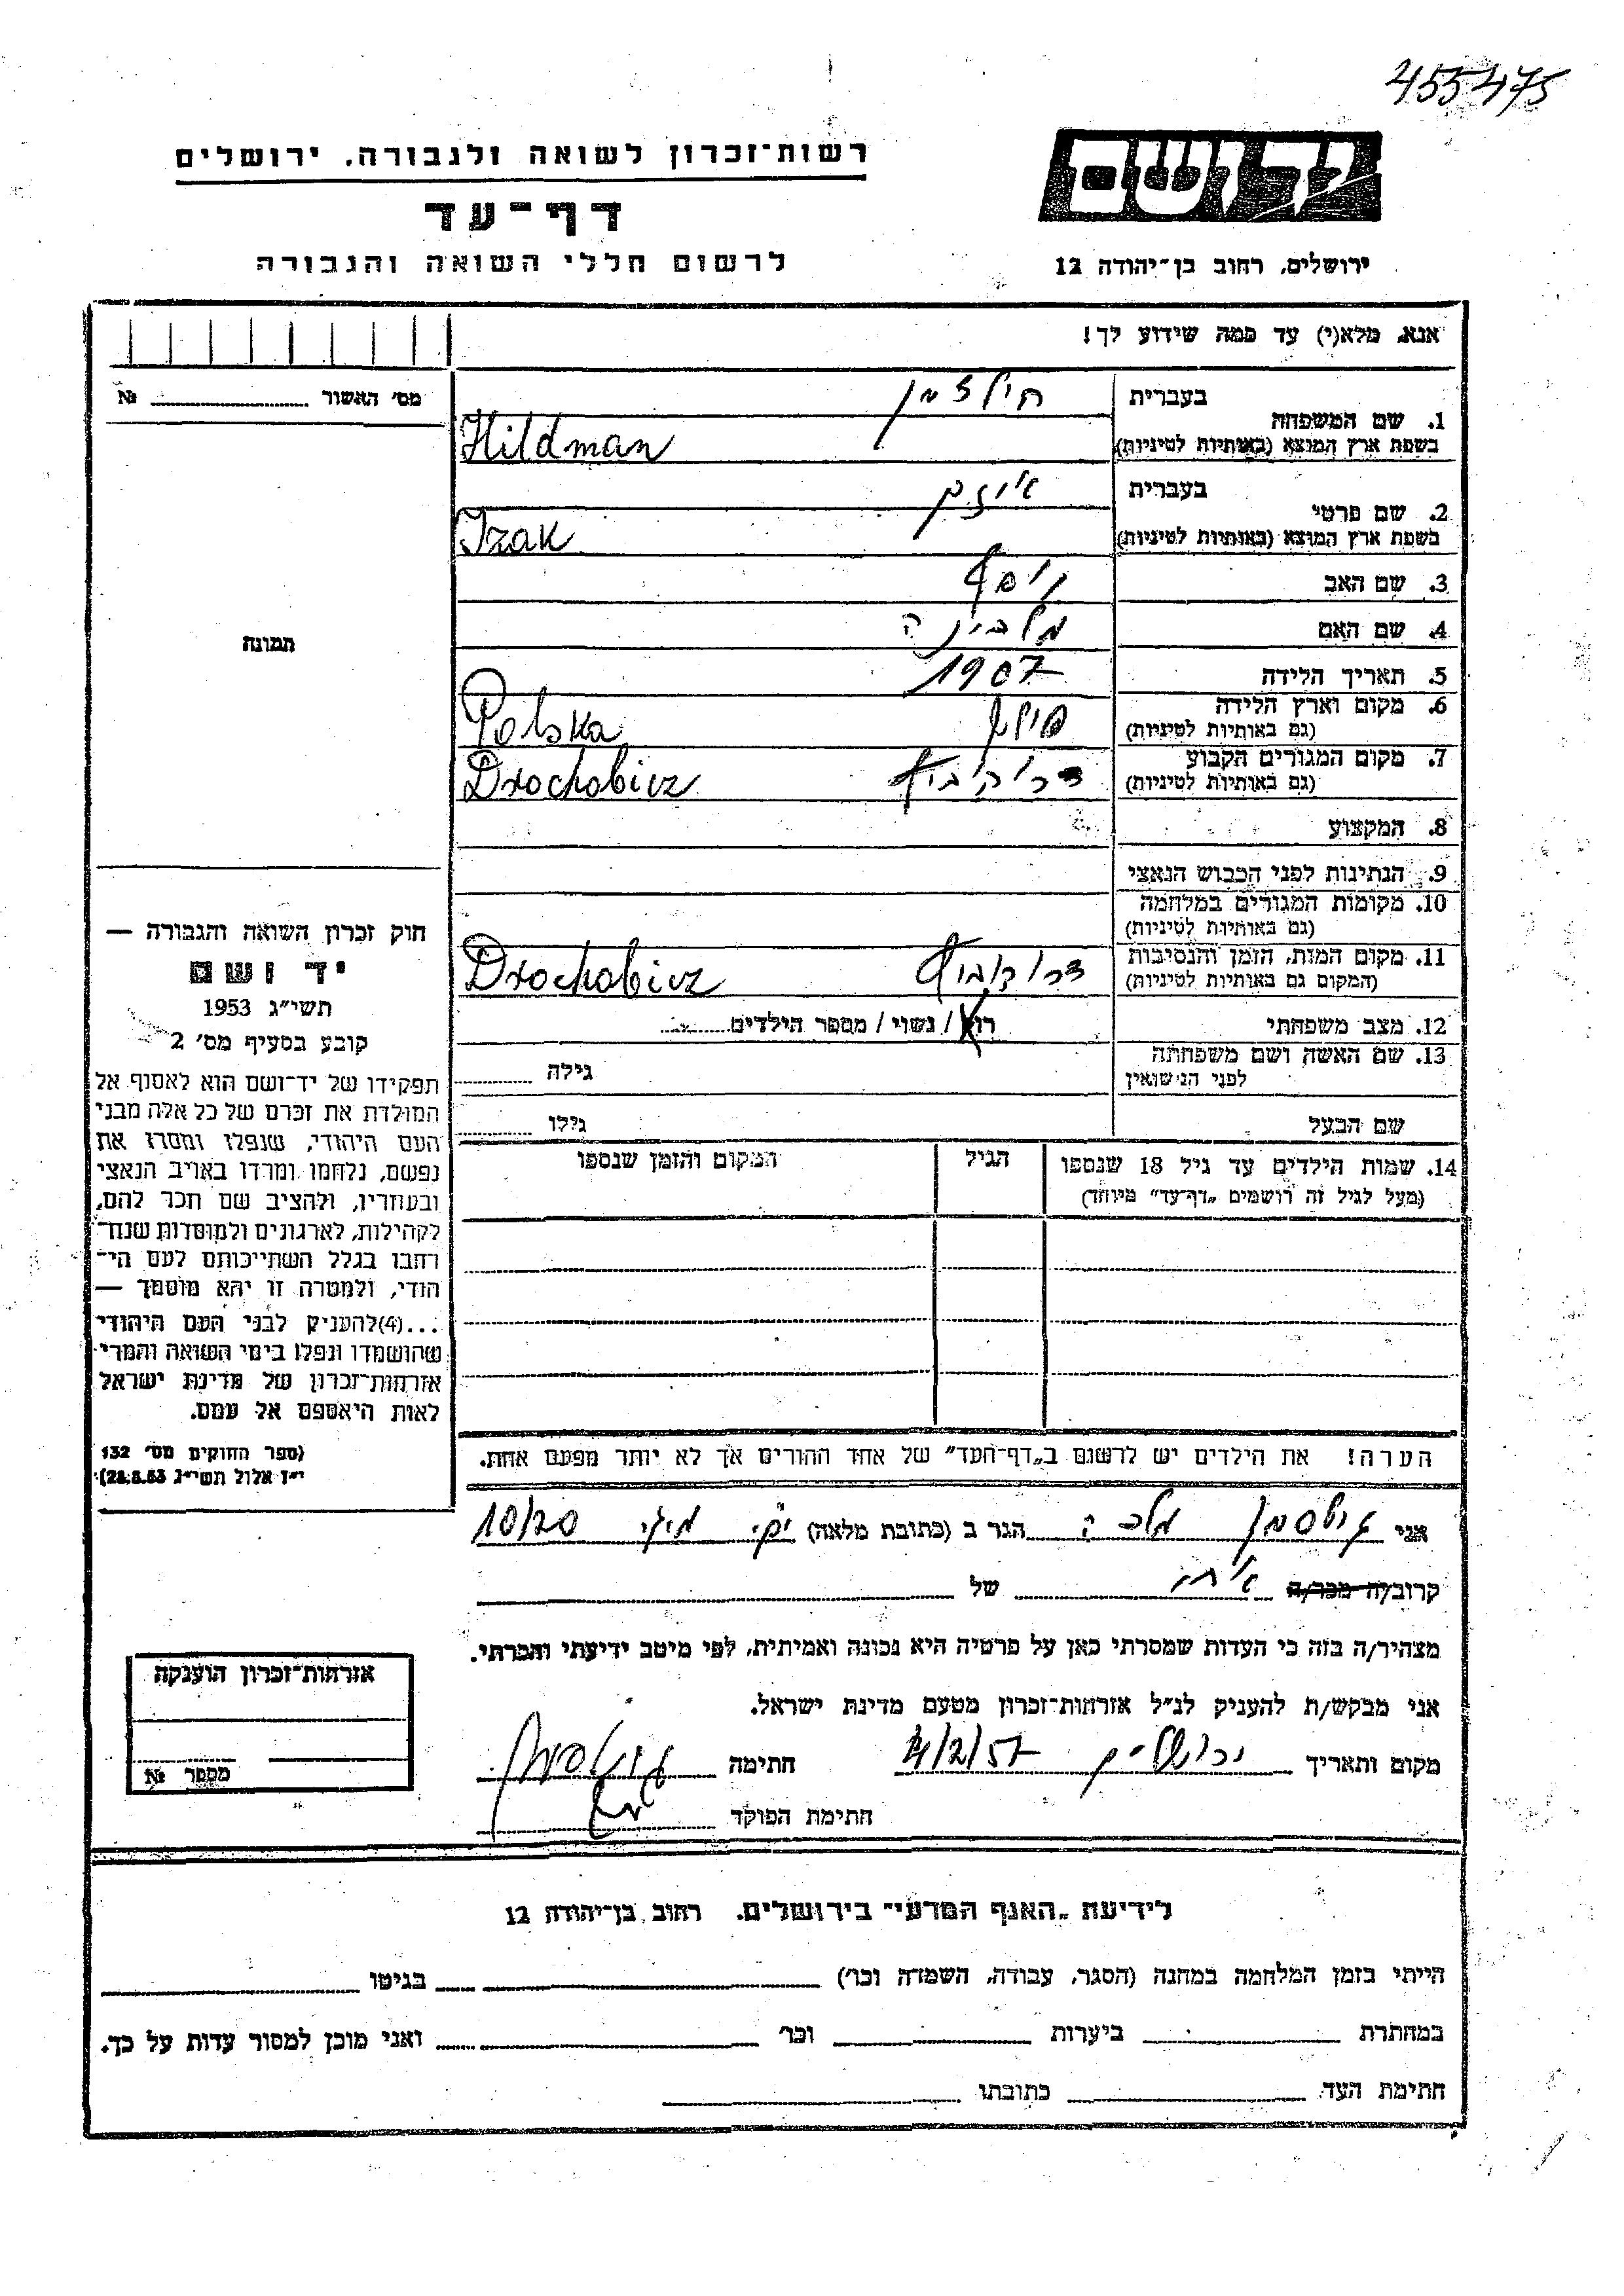 455475
יד ושם
רשות־זכרון לשואה ולגבורה, ירושלים
דף־עד
לרשום חללי השואה והגבורה
ירושלים, רחוב בן־יהודה 12
אנא, מלא(י) עד כמה שידוע לך!
מס׳ האשור № 
1. שם המשפחה
בעברית חילדמן
בשפת ארץ המוצא (באותיות לטיניות) Hildman
2. שם פרטי
בעברית איזק
בשפת ארץ המוצא (באותיות לטיניות) Izak
3. שם האב יוסף
4. שם האם מלבינה
5. תאריך הלידה 1907
6. מקום וארץ הלידה פולין Polska
(גם באותיות לטיניות)
7. מקום המגורים הקבוע Drochobicz
(גם באותיות לטיניות)
8. המקצוע
9. הנתינות לפני הכבוש הנאצי
10. מקומות המגורים במלחמה
(גם באותיות לטיניות)
11. מקום המות, הזמן והנסיבות Drochobicz
(המקום גם באותיות לטיניות)
12. מצב משפחתי רוק / נשוי / מספר הילדים
13. שם האשה ושם משפחתה גילה
לפני הנישואין
שם הבעל גילו
14. שמות הילדים עד גיל 18 שנספו הגיל המקום והזמן שנספו
(מעל לגיל זה רושמים „דף־עד” מיוחד)
הערה! את הילדים יש לרשום ב„דף־העד” של אחד ההורים אך לא יותר מפעם אחת.
תמונה
חוק זכרון השואה והגבורה —
יד ושם
תשי״ג 1953
קובע בסעיף מס׳ 2
תפקידו של יד־ושם הוא לאסוף אל
המולדת את זכרם של כל אלה מבני
העם היהודי, שנפלו ומסרו את
נפשם, נלחמו ומרדו באויב הנאצי
ובעוזריו, ולהציב שם וזכר להם,
לקהילות, לארגונים ולמוסדות שנח־
רבו בגלל השתייכותם לעם הי־
הודי, ולמטרה זו יהא מוסמך —
...(4)להעניק לבני העם היהודי
שהושמדו ונפלו בימי השואה והמרי
אזרחות־זכרון של מדינת ישראל
לאות היאספם אל עמם.
(ספר החוקים מס׳ 132
י״ז אלול תשי״ג 28.8.53)
אני מלכה הגר ב (כתובת מלאה) 10/20
קרוב/ה מכר/ה של
מצהיר/ה בזה כי העדות שמסרתי כאן על פרטיה היא נכונה ואמיתית, לפי מיטב ידיעתי והכרתי.
אני מבקש/ת להעניק לנ״ל אזרחות־זכרון מטעם מדינת ישראל.
מקום ותאריך ירושלים 4/2/57 חתימה
חתימת הפוקד
אזרחות־זכרון הוענקה
מספר №
לידיעת „האגף המדעי” בירושלים, רחוב בן־יהודה 12
הייתי בזמן המלחמה במחנה (הסגר, עבודה, השמדה וכו׳) בגיטו
במחתרת ביערות וכו׳ ואני מוכן למסור עדות על כך.
חתימת העד כתובתו